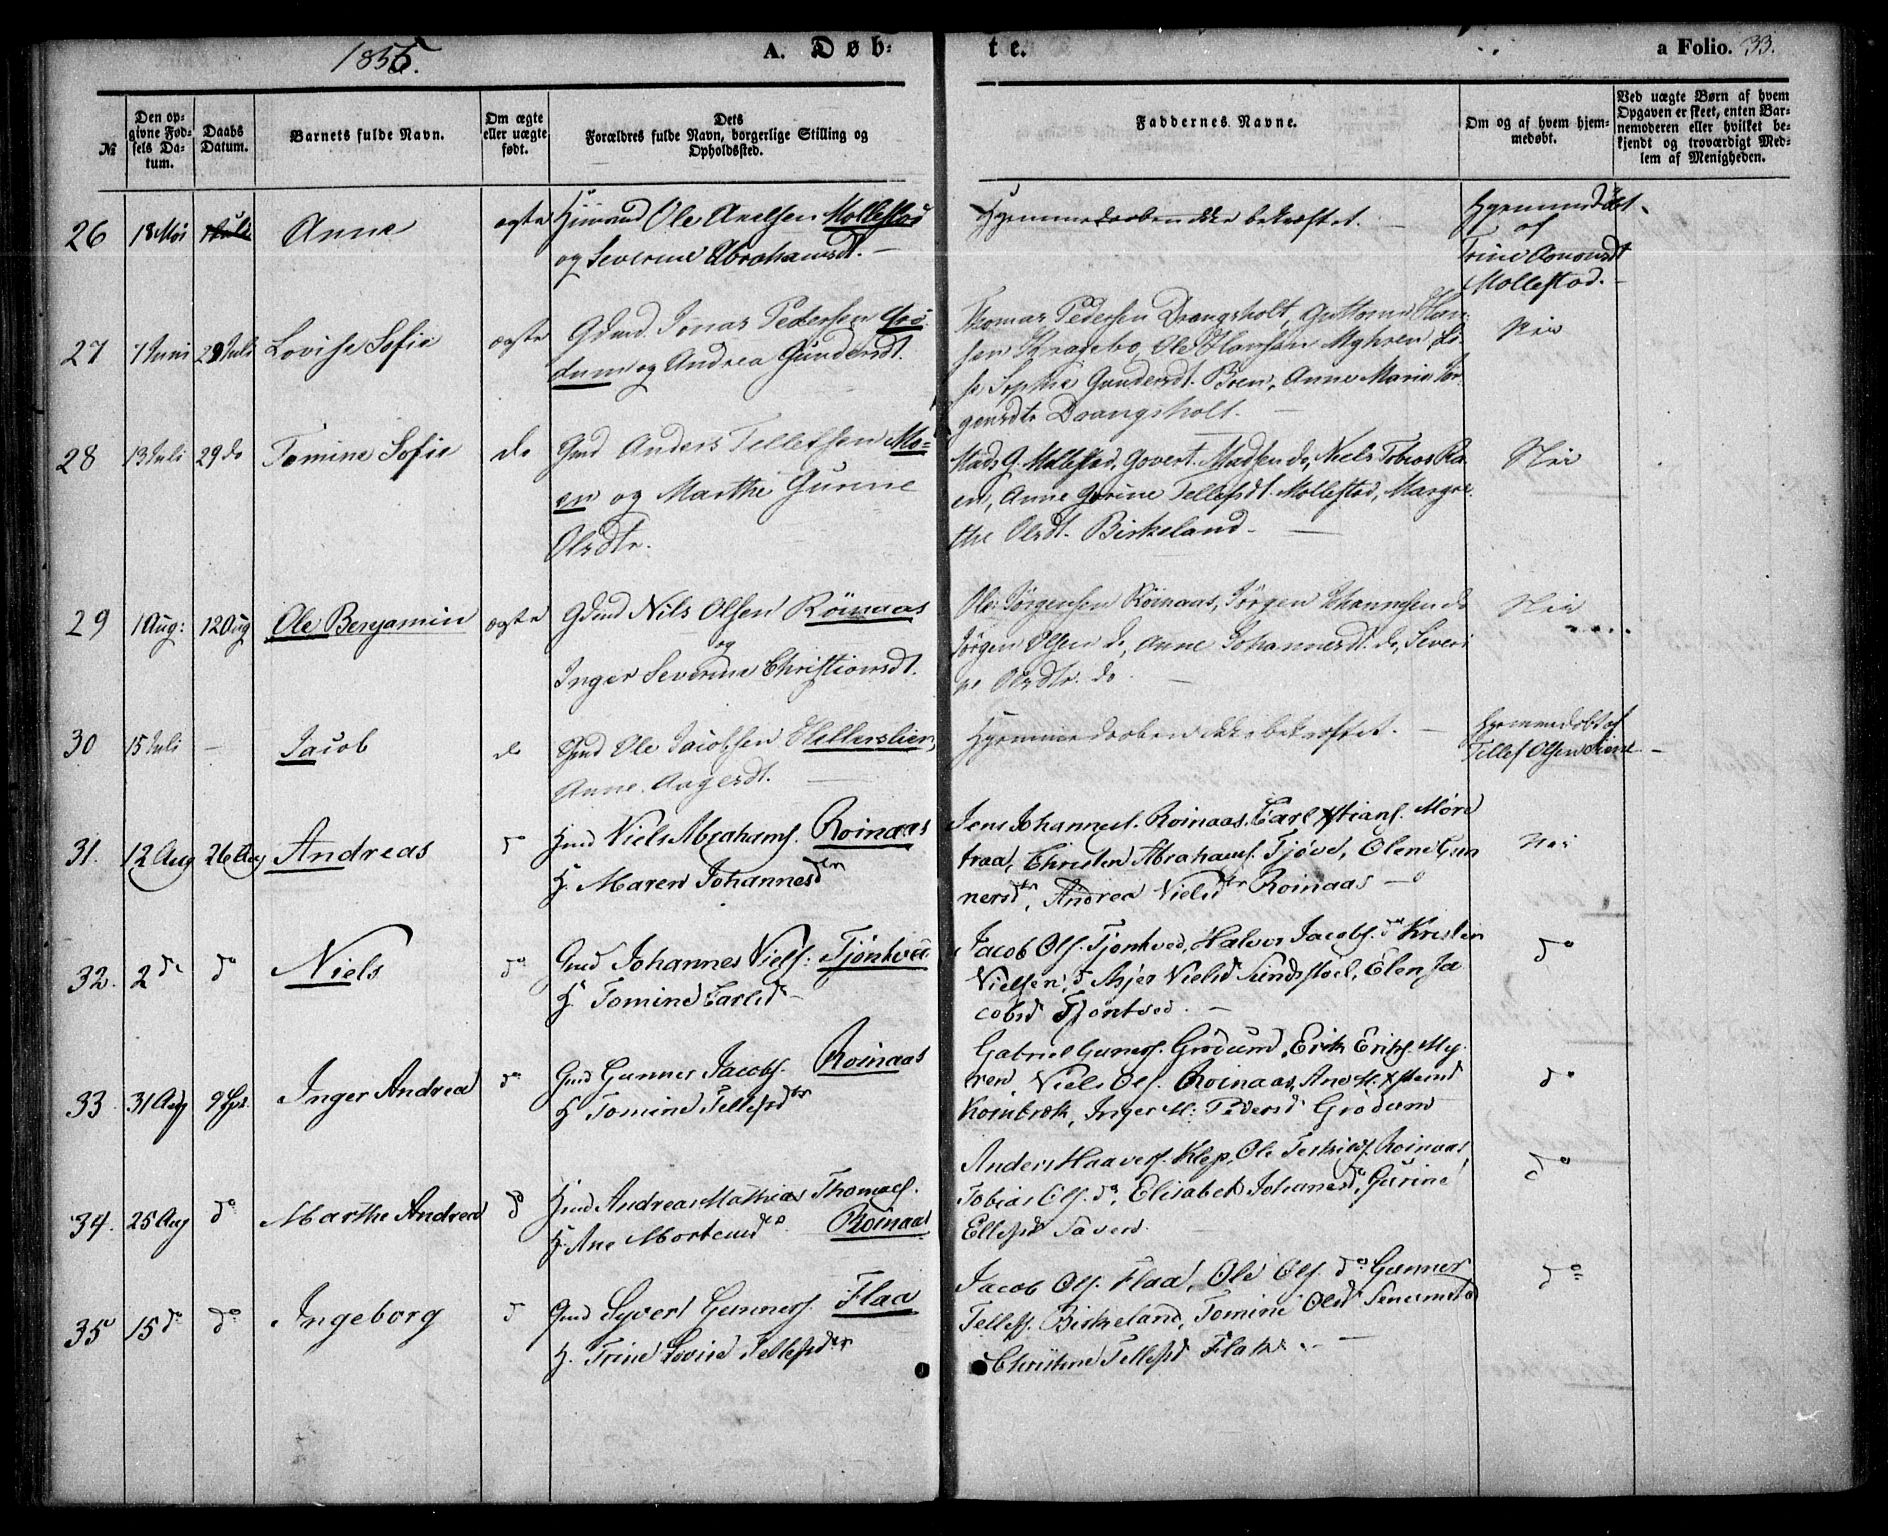 1855.
A. Døb-
te.
a Folio. 33.
№
Den op-
givne Fød-
sels Da-
tum.
Daabs
Datum.
Barnets fulde Navn.
Om ægte
eller uægte
født.
Dets
Forældres fulde Navn, borgerlige Stilling og
Opholdssted.
Faddernes Navne.
Om og af hvem hjem-
medøbt.
Ved uægte Børn af hvem
Opgaven er skeet, enten Bar-
nemoderen eller hvilket be-
kjendt og troværdigt Med-
lem af Menigheden.
26 18 Mai Anne ægte Ole Mollestad
og Severine Abrahamsdt. –
Hjemmedaaben ikke bekræftet. –
Hjemmedøbt
af
Trine
Mollestad. –
27 7 Juni 29 Juli Lovise Sofie ægte Gdmd. Jonas Pedersen Grö-
dum og Andrea Gundersdt.
Thomas Pedersen Drangsholt, Guttorm Han-
sen Ole Hansen Myhren, Li-
se Sophie Gundersdt. Anne Marie Jør-
gensdtr Drangsholt. –
Nei
28 13 Juli 29 do Tomine Sofie do Gmd Anders Tellefsen Mo-
en og Marthe Gurine
Olsdtr.
Mads G. Mollestad, Govert Madsen do, Niels Tobias
en, Anne Gurine Tellefsdt. Mollestad, Margre-
the Olsdt. Birkeland –
Nei
29 1 Aug: 12 Aug Ole Benjamin ægte Gdmd Nils Olsen Röinaas
og
Inger Severine Christiansdt.
Ole Jørgensen Röinaas, Jørgen Johannesen do
Jørgen Olsen do, Anne Johannesdt. do, Severi-
ne Olsdtr. do –
Nei
30 15 Juli – Jacob do Gmd Ole Jacobsen Hellerslien,
Anne Aagesdt. –
Hjemmedaaben ikke bekræftet. –
Hjemmedøbt af
Tellef Olsen –
31. 12 Aug 26 Aug Andreas do Hmd Niels Abrahams. Roinaas
H. Maren Johannesdtr
Jens Johannes. Roinaas, Carl Xstians. Møre
traa, Christen Abrahams. Tjøve, Olene Gun
nersdtr, Andrea Nielsdtr Roinaas –
Nei
32. 2 do do Niels do Gmd Johannes Niels: Tjøntved
H. Tomine Carlsd –
Jacob Ols. Tjøntved, Halvor Jacobs. do Kristen
Nielsen, do Asjer Nielsd Sundstoel, Elen Ja
cobsd Tjøntved –
do
33. 31 Aug 9 Spt. Inger Andrea do Gmd Gunner Jacobs. Roinaas
H Tomine Tellefsdtr
Gabriel Guners. Grödum, Erik Eriks. My-
ren, Niels Ols. Roinaas, Ane M. Xstensd
Kornbrek, Inger M: Pedersd Grödum
do
34. 25 Aug do Marthe Andrea do Hmd Andreas Mathias Thomas.
H. Ane Mortensd Roinaas
Anders Haavers. Klep, Ole Roinaas,
Tobias Ols. do, Elisabet Johanesd, Gurine
Ellefsd
do
35 15 do do Ingeborg do Gmd Syvert Gunners. Flaa
H. Trine Lovise Tellefsdtr
Jacob Ols. Flaa, Ole Ols. do Gunner
Tellefs. Birkeland, Tomine Olsd
Christine Tellefsd Flak. –
do